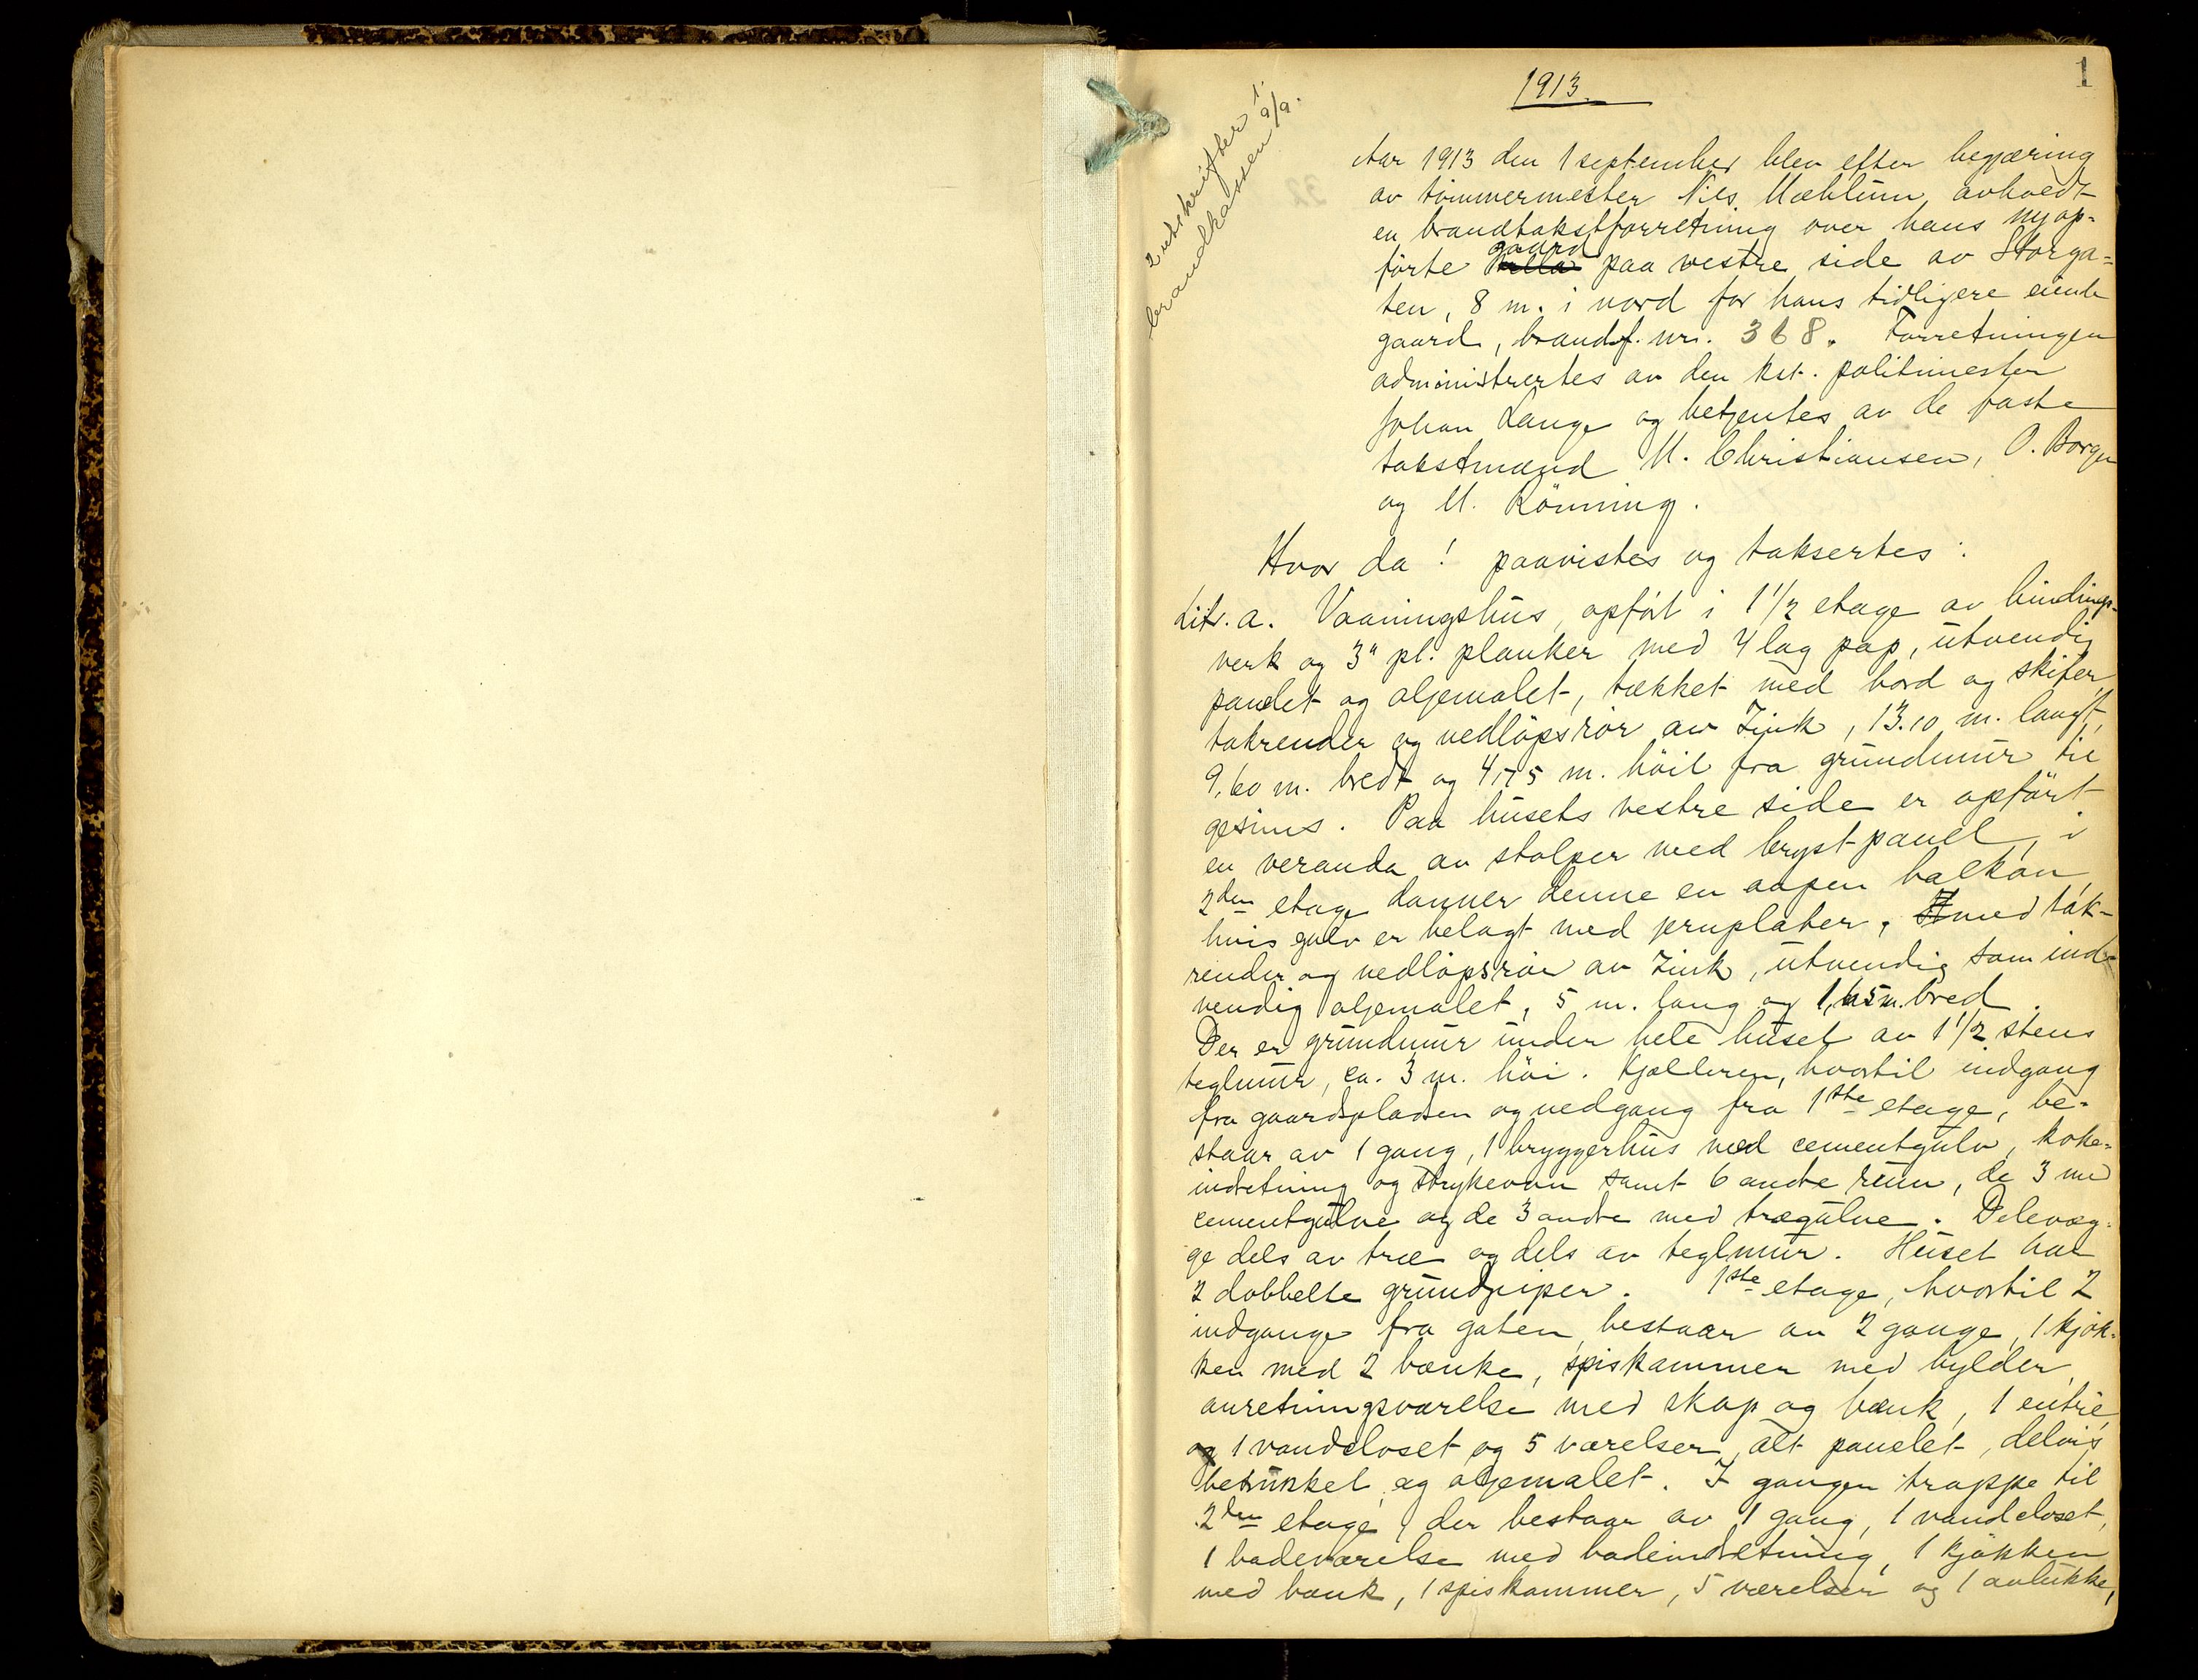 1
1913
2 utskrifter i
brandkassen 9/9.
Aar 1913 den 1 september blev efter begjæring
av tömmermester Nils Mæhlum avholdt
en brandtakstforretning over hans nyop-
förte gaard paa vestre side av Storga-
ten, 8 m. i nord for hans tidligere eiende
gaard, brandf. nr. 368. Forretningen
administrertes av den kst. politimester
Johan Lange og betjentes av de faste
takstmænd M. Christiansen, O. Borge
og M. Rönning.
Hvor da! paavistes og taksertes:
Litr. a. Vaaningshus, opfört i 1 1/2 etage av bindings-
verk og 3" pl. planker med 4 lag pap, utvendig
panelet og oljemalet, tækket med bord og skifer,
takrender og nedlöpsrör av Zink, 13.10 m. langt,
9,60 m. bredt og 4,75 m. höit fra grundmur til
gesims. Paa husets vestre side er opfört
en veranda av stolper med brystpanel, i
2den etage danner denne en aapen balkon
hvis gulv er belagt med jernplater, med tak-
render og nedlöpsrör av Zink, utvendig som ind-
vendig oljemalet, 5 m. lang og 1,65 m. bred.
Der er grundmur under hele huset av 1 1/2 stens
teglmur, ca. 3 m. höi. Kjælderen, hvortil indgang
fra gaardspladsen og nedgang fra 1ste etage, be-
staar av 1 gang, 1 bryggerhus med cementgulv, koke-
indretning og strykeovn samt 6 andre rum, de 3 med
cementgulve og de 3 andre med trægulve. Delevæg-
ge dels av træ og dels av teglmur. Huset har
2 dobbelte grundpiper. 1ste etage, hvortil 2
indgange fra gaten, bestaar av 2 gange, 1 kjök-
ken med 2 bænke, spiskammer med hylder,
anretningsværelse med skap og bænk, 1 entré,
1 vandcloset og 5 værelser, alt panelet, delvis
betrukket og oljemalet. I gangen trappe til
2den etage, der bestaar av 1 gang, 1 vandcloset,
1 badeværelse med badeindretning, 1 kjökken
med bænk, 1 spiskammer, 5 værelser og 1 avlukke,